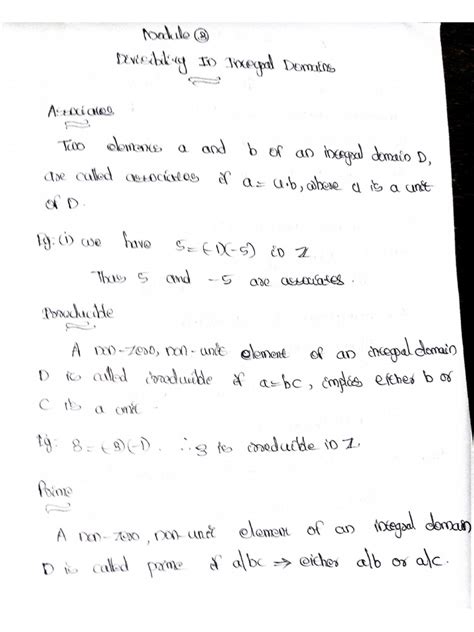 Module ⑧
Divisibility In Integral Domains
Associates
Two elements a and b of an integral domain D,
are called associates if a= u.b, where u is a unit
of D.
Eg: (i) we have 5 = (-1)(-5) in Z
Thus 5 and -5 are associates.
Irreducible
A non-zero, non-unit element of an integral domain
D is called irreducible if a=bc, implies either b or
C is a unit.
Eg: 8 = (-8)(-1). ∴ 8 is irreducible in Z.
Prime
A non-zero, non-unit element of an integral domain
D is called prime if a/bc → either a/b or a/c.